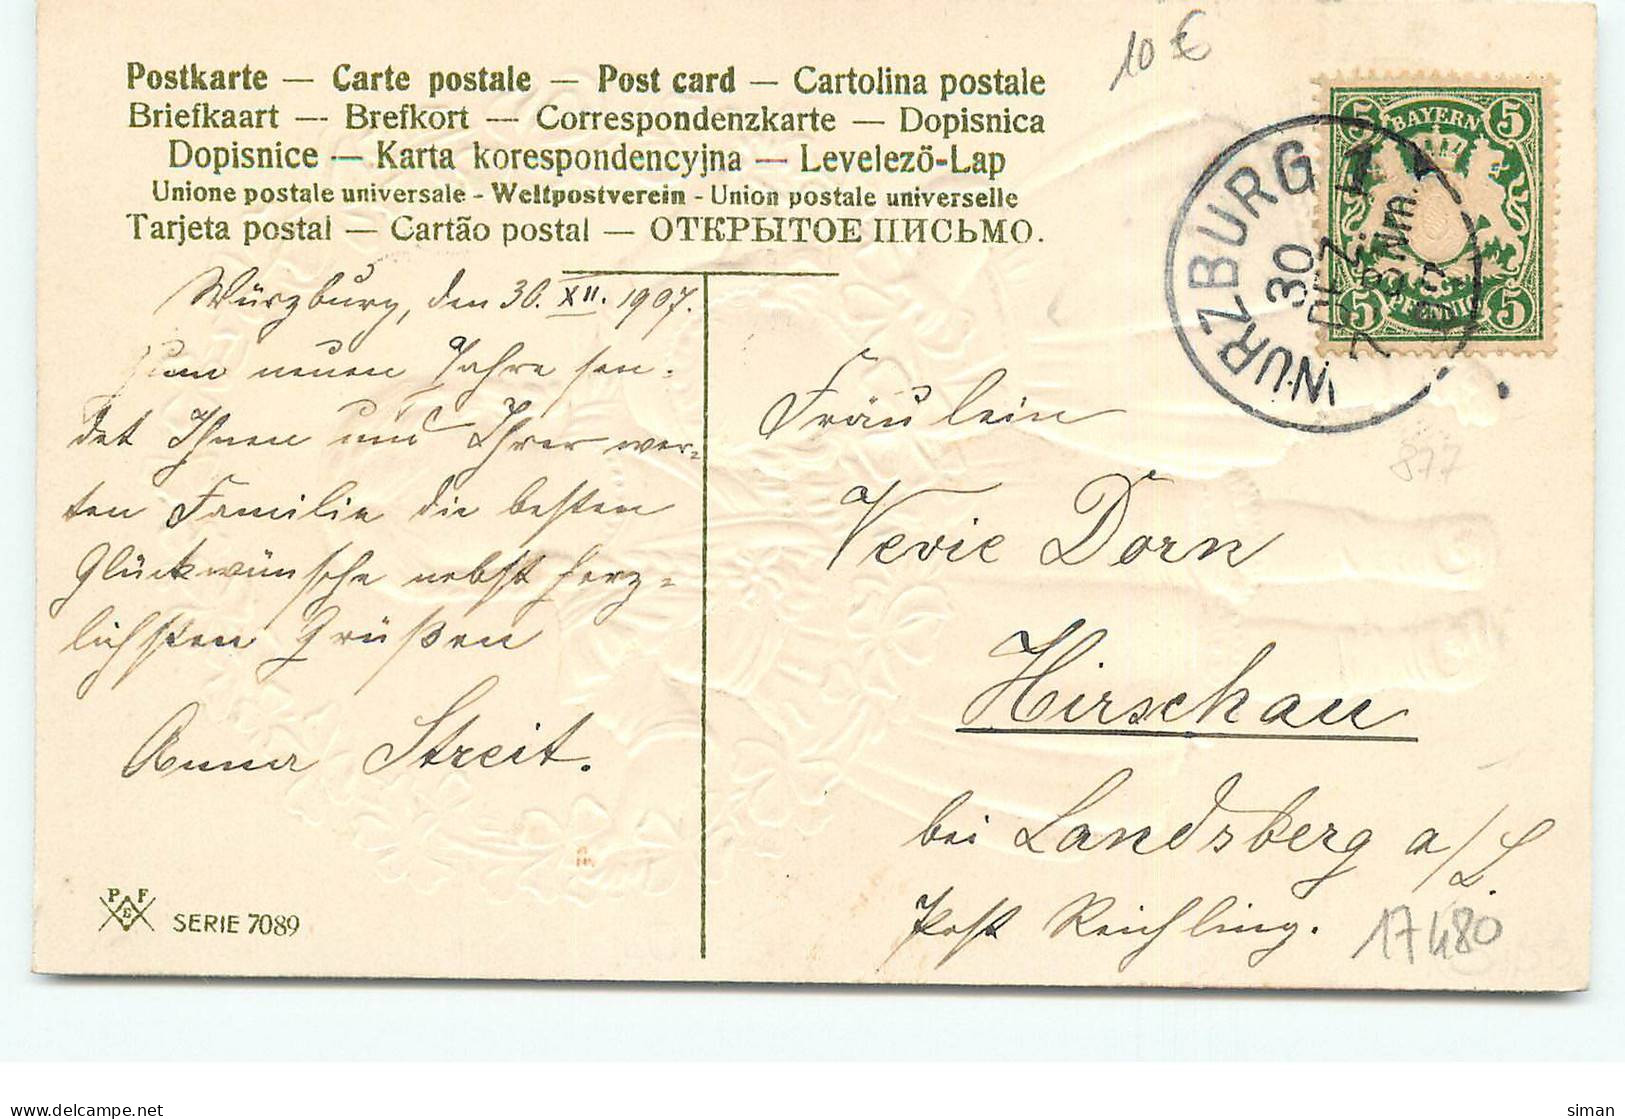 10 €
Postkarte — Carte postale — Post card — Cartolina postale
Briefkaart — Brefkort — Correspondenzkarte — Dopisnica
Dopisnice — Karta korespondencyjna — Levelezö-Lap
Unione postale universale - Weltpostverein - Union postale universelle
Tarjeta postal — Cartão postal — ОТКРЫТОЕ ПИСЬМО.
BAYERN
5 5
5 5
PFENNIG
WURZBURG 1
30
DEZ
7-8 NM.
Würzburg, den 30. XII. 1907.
Zum neuen Jahre sen-
det Ihnen und Ihrer wer-
ten Familie die besten
Glückwünsche nebst herz-
lichsten Grüßen
Anna Streit.
Fräulein
Vevie Dorn
Hirschau
bei Landsberg a/L.
Post Reichling.
877
17480
P F
&
SERIE 7089
delcampe.net
siman